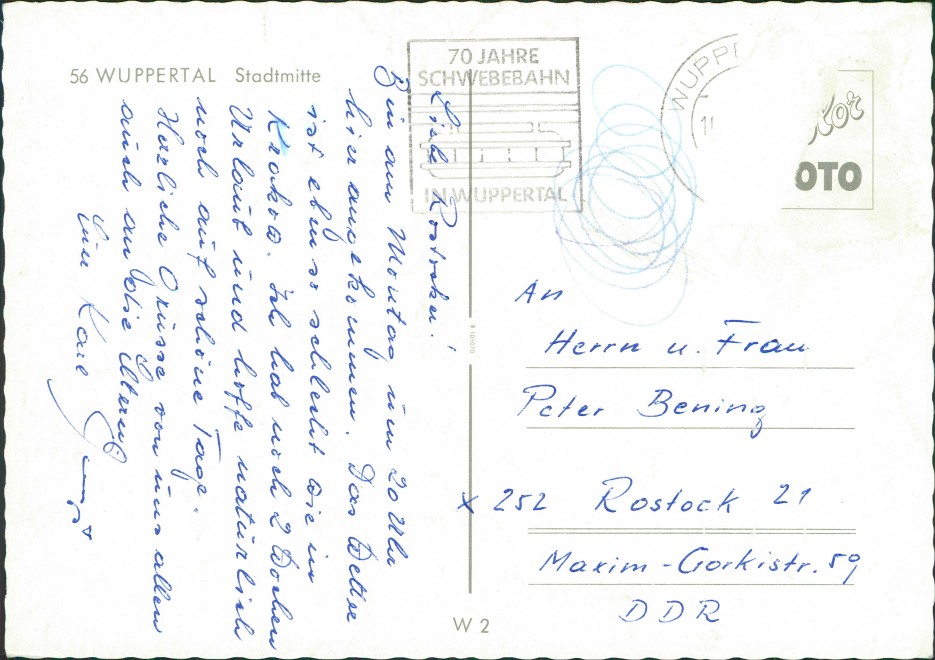 56 WUPPERTAL Stadtmitte
70 JAHRE
SCHWEBEBAHN
IN WUPPERTAL
WUPP
OTO
Liebe Rostocker!
Bin am Montag um 20 Uhr
hier angekommen. Das Wetter
ist ebenso schlecht wie in
Krakow. Ich hab noch 2 Wochen
Urlaub und hoffe natürlich
noch auf schöne Tage.
Herzliche Grüsse von uns allen
auch an die Eltern
Euer Karl
An
Herrn u. Frau
Peter Bening
X 252 Rostock 21
Maxim-Gorkistr. 59
DDR
W 2